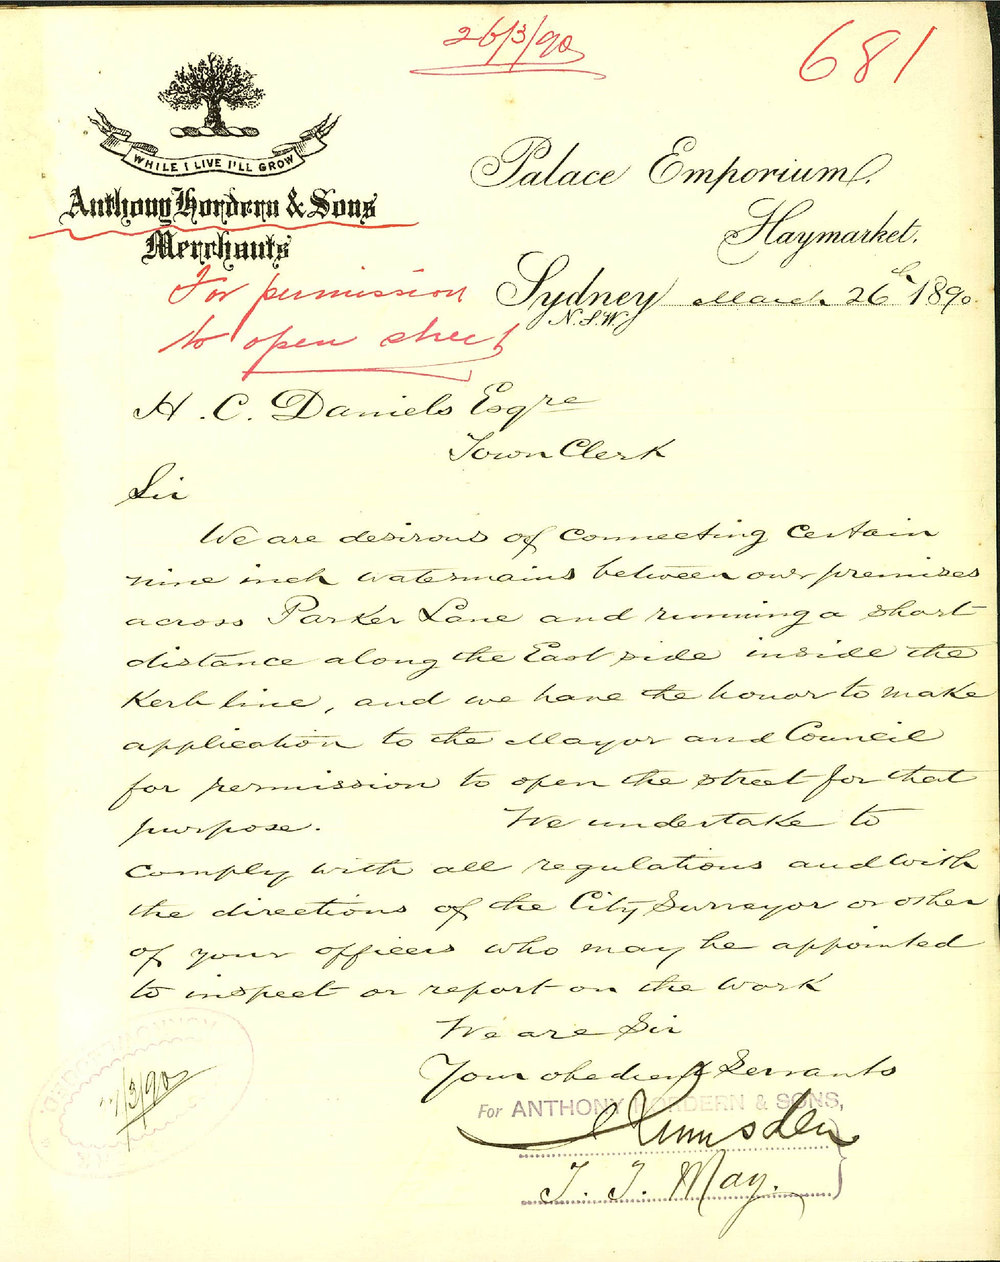 26/3/90
681
WHILE I LIVE I'LL GROW
Anthony Hordern & Sons
Merchants
Palace Emporium,
Haymarket.
Sydney March 26th 1890
N.S.W.
For permission
to open street
H. C. Daniels Esqre
Town Clerk
Sir
We are desirous of connecting certain
nine inch watermains between our premises
across Parker Lane and running a short
distance along the East side inside the
Kerb line, and we have the honor to make
application to the Mayor and Council
for permission to open the street for that
purpose. We undertake to
comply with all regulations and with
the directions of the City Surveyor or other
of your officers who may be appointed
to inspect or report on the work
We are Sir
Your obedient Servants
For ANTHONY HORDERN & SONS,
T. J. May.
/3/90